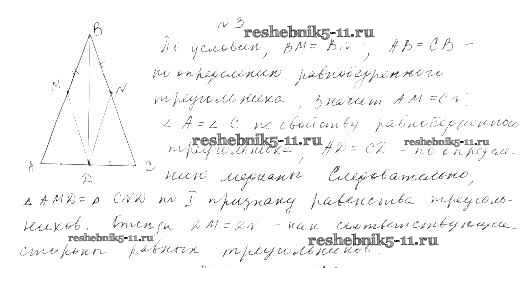 B
N3
reshebnik5-11.ru
По условию, BM = BN, AB = CB –
по определению равнобедренного
треугольника, значит AM = CN
∠A = ∠C по свойству равнобедренного
reshebnik5-11.ru
треугольника, AD = CD – по опреде-
нию медианы. Следовательно,
A
D
△AMD = △CND по I признаку равенства треуголь-
ников. Отсюда DM = DN – как соответствующие
reshebnik5-11.ru
reshebnik5-11.ru
стороны равных треугольников.